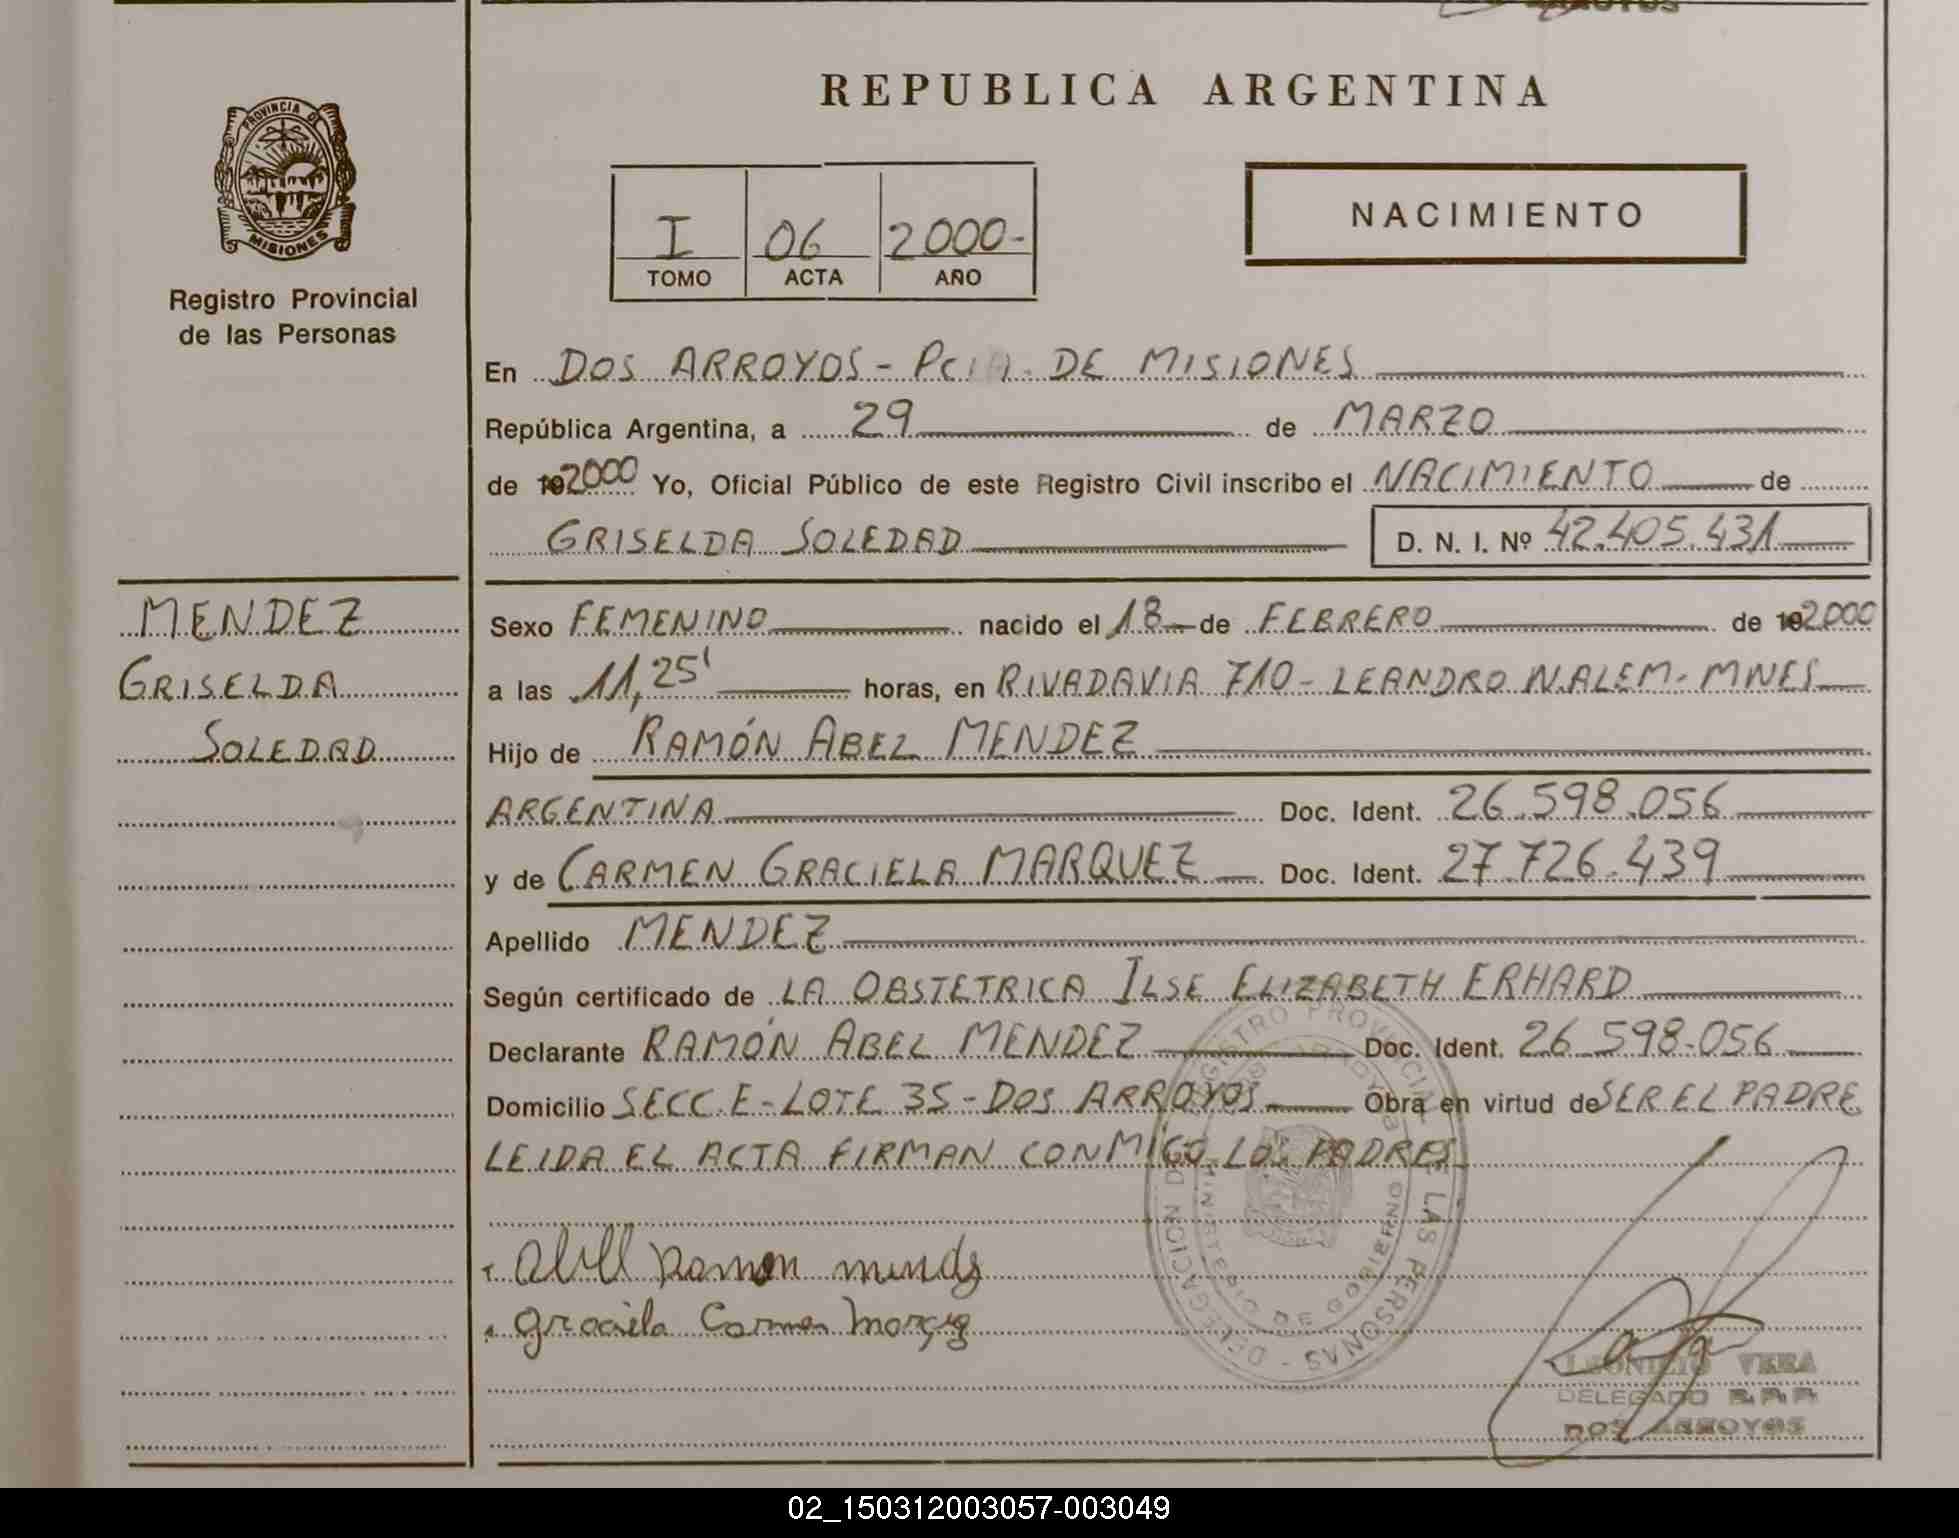 REPUBLICA ARGENTINA
PROVINCIA DE
MISIONES
Registro Provincial
de las Personas
I 06 2000-
TOMO ACTA AÑO
NACIMIENTO
En DOS ARROYOS - PCIA. DE MISIONES
República Argentina, a 29 de MARZO
de 192000 Yo, Oficial Público de este Registro Civil inscribo el NACIMIENTO de
GRISELDA SOLEDAD D. N. I. Nº 42.405.431
MENDEZ
GRISELDA
SOLEDAD
Sexo FEMENINO nacido el 18 de FEBRERO de 192000
a las 11,25' horas, en RIVADAVIA 710 - LEANDRO N. ALEM - MNES
Hijo de RAMÓN ABEL MENDEZ
ARGENTINA Doc. Ident. 26.598.056
y de CARMEN GRACIELA MARQUEZ Doc. Ident. 27.726.439
Apellido MENDEZ
Según certificado de LA OBSTETRICA ILSE ELIZABETH ERHARD
Declarante RAMÓN ABEL MENDEZ Doc. Ident. 26.598.056
Domicilio SECC. E - LOTE 35 - DOS ARROYOS Obra en virtud de SER EL PADRE
LEIDA EL ACTA FIRMAN CONMIGO LOS PADRES
DELEGACION DEL REGISTRO PROVINCIAL DE LAS PERSONAS
MINISTERIO DE GOBIERNO
Ramon
Graciela Carmen
VERA
DELEGADO R.P.P.
DOS ARROYOS
02_150312003057-003049